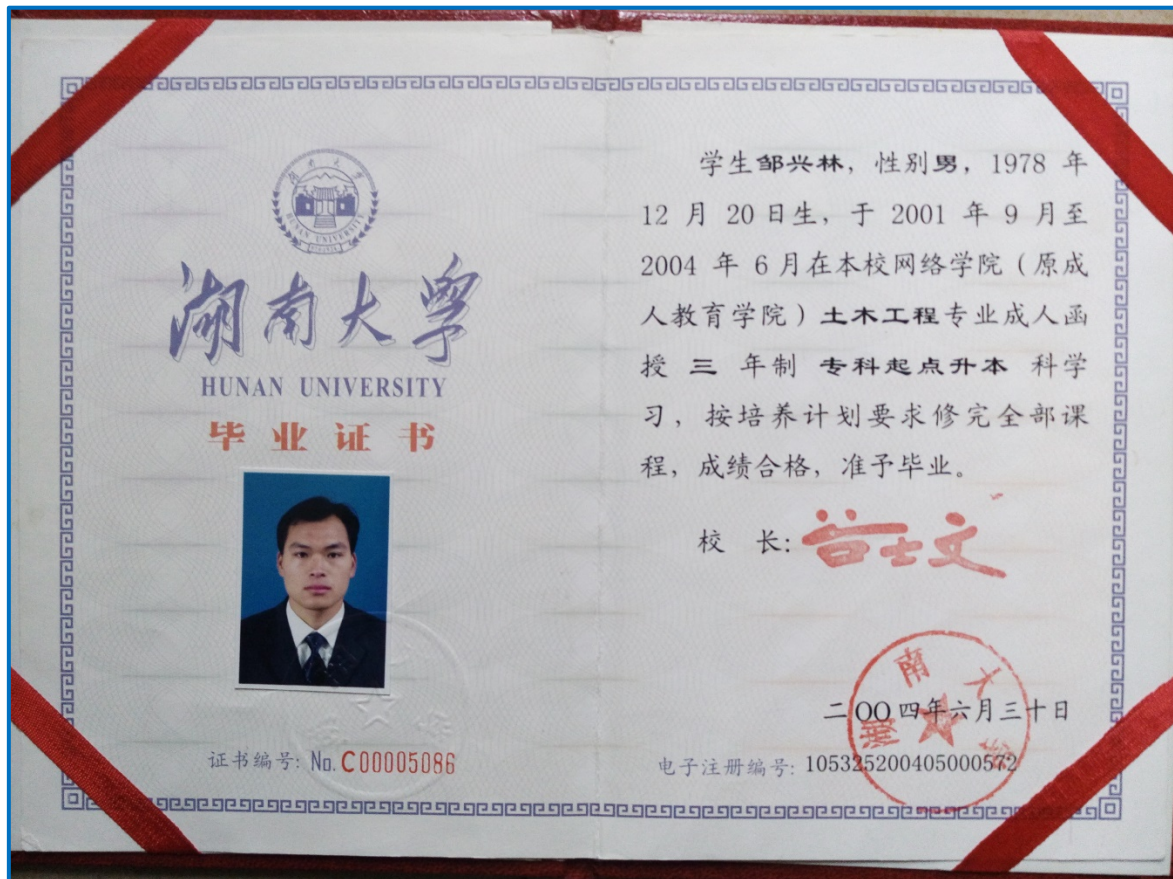 湖南大学
HUNAN UNIVERSITY
湖南大学
HUNAN UNIVERSITY
毕业证书
证书编号: No. C00005086
学生邹兴林, 性别男, 1978 年
12 月 20 日生, 于 2001 年 9 月至
2004 年 6 月在本校网络学院 (原成
人教育学院) 土木工程专业成人函
授 三 年制 专科起点升本 科学
习, 按培养计划要求修完全部课
程, 成绩合格, 准予毕业。
校 长: 谷士文
二〇〇四年六月三十日
湖南大学
电子注册编号: 105325200405000572